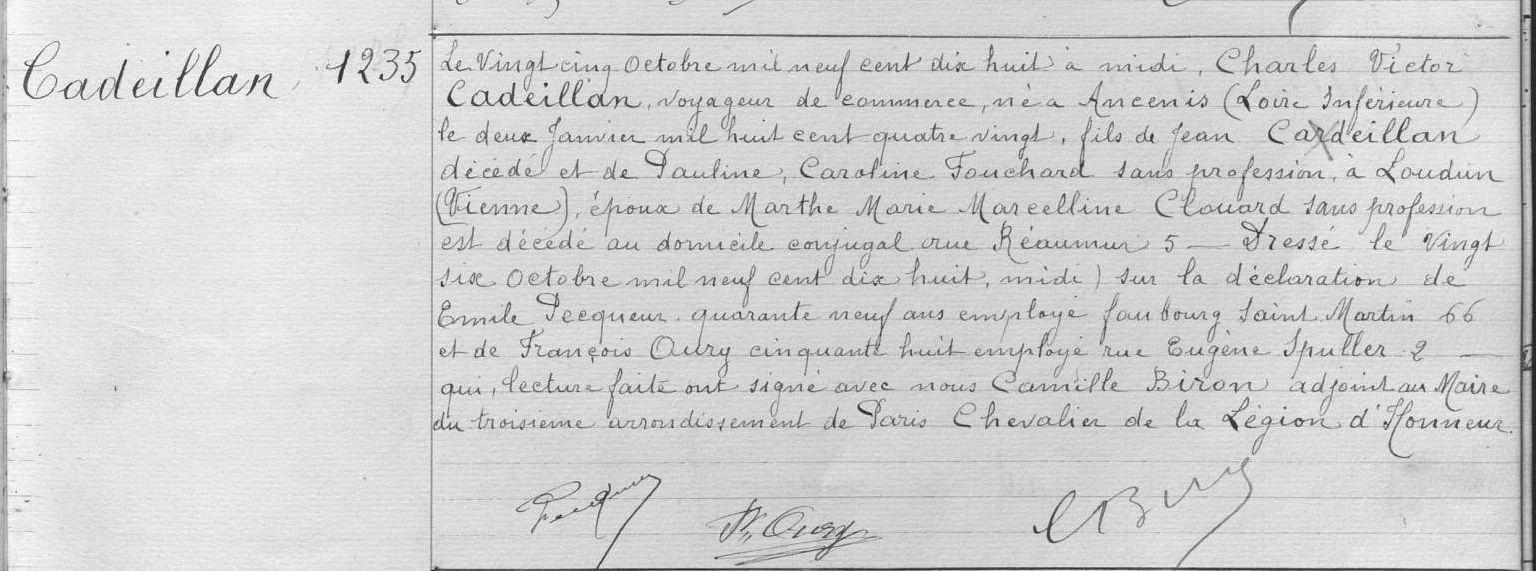 Cadeillan, 1235
Le Vingt cinq Octobre mil neuf cent dix huit à midi, Charles Victor
Cadeillan, voyageur de commerce, né à Ancenis (Loire Inférieure)
le deux Janvier mil huit cent quatre vingt, fils de Jean Cardeillan
décédé et de Pauline, Caroline Fouchard sans profession, à Loudun
(Vienne), époux de Marthe Marie Marcelline Clouard sans profession
est décédé au domicile conjugal rue Réaumur 5 — Dressé le Vingt
six Octobre mil neuf cent dix huit, midi) sur la déclaration de
Emile Pecqueur. quarante neuf ans employé faubourg Saint Martin 66
et de François Oury cinquante huit employé rue Eugène Spuller 2 —
qui, lecture faite ont signé avec nous Camille Biron adjoint au Maire
du troisième arrondissement de Paris Chevalier de la Légion d'Honneur.
Pecqueur Fr. Oury C Biron